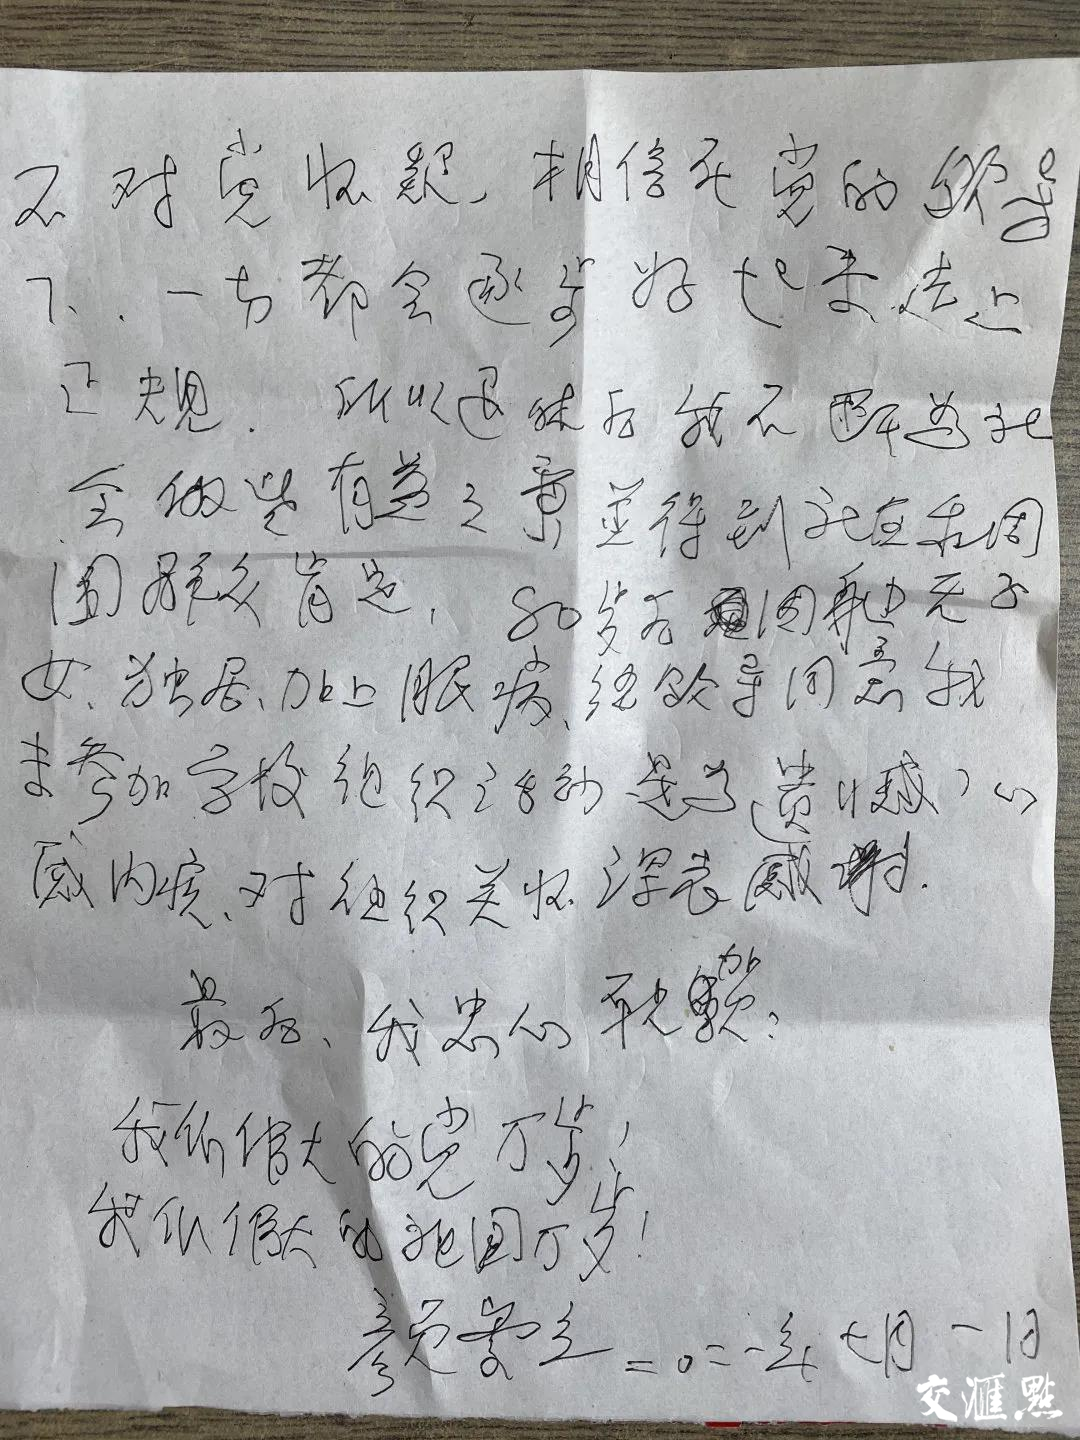 不对党怀疑，相信在党的领导
下、一切都会逐步好起来，走上
正规．所以退休后我不断为社
会做些有益之事並得到社区和周
围群众肯定，80岁后因孤独无子
女、独居、加上眼病、经领导同意我
未参加学校组织活动是为遗憾，心
感内疚、对组织关怀深表感谢．
最后、我忠心祝贺：
我们伟大的党万岁！
我们伟大的祖国万岁！
颜 二0二一年七月一日
交滙點